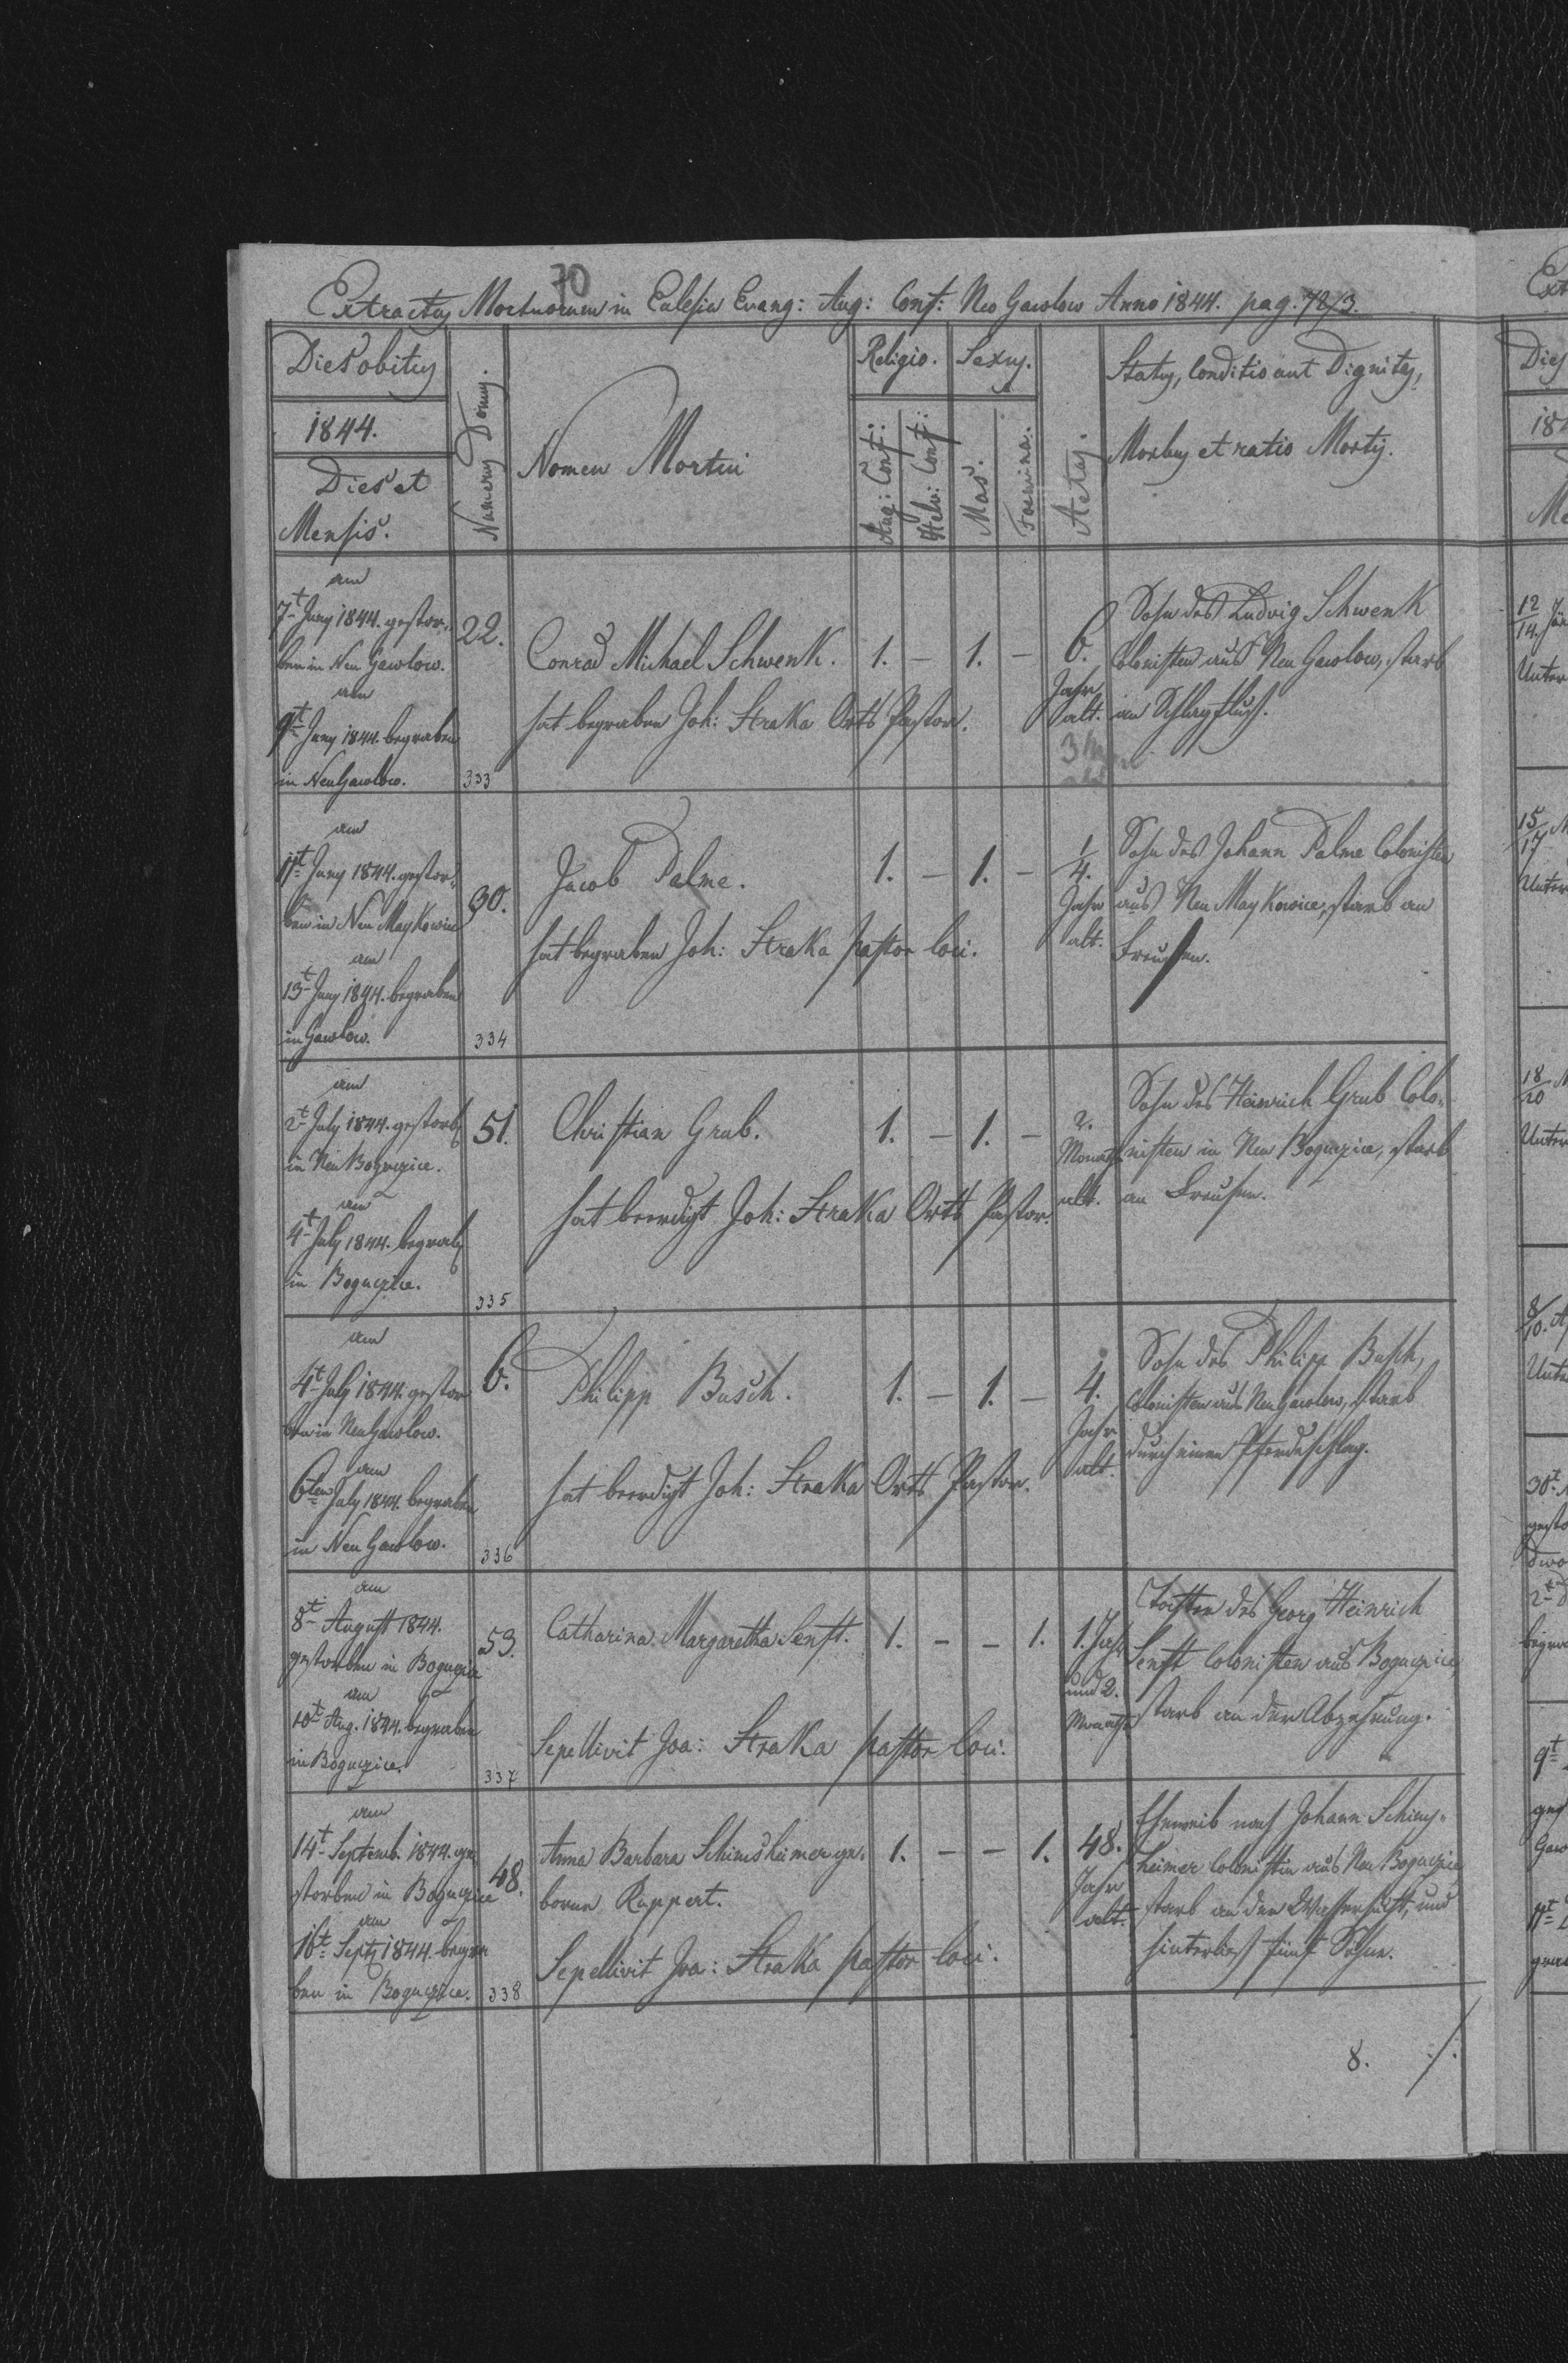 70
Extractus Mortuorum in Eclesia Evang: Aug: Conf: Neo Gawlow Anno 1844. pag. 72/3.
Dies obitus
1844.
Dies et
Mensis.
Numerus Domus.
Nomen Mortui
Religio.
Aug: Conf:
Helv: Conf:
Sexus.
Mas.
Foemina.
Aetas.
Status, Conditio aut Dignitas,
Morbus et ratio Mortis.
am
7t Juny 1844. gestor-
ben in Neu Gawlow.
am
9t Juny 1844. begraben
in Neu Gawlow.
22.
333
Conrad Michael Schwenk.
hat begraben Joh: Straka Orts Pastor.
1. — 1. —
6.
Jahr
alt.
Sohn des Ludwig Schwenk
Colonisten aus Neu Gawlow, starb
an Schlagfluß.
am
11t Juny 1844. gestor-
ben in Neu Maykowice
am
13t Juny 1844. begraben
in Gawlow.
30.
334
Jacob Palme.
hat begraben Joh: Straka pastor loci.
1. — 1. —
1/4.
Jahr
alt.
Sohn des Johann Palme Colonisten
aus Neu Maykowice, starb an
Freußen.
am
2t July 1844. gestorb
in Neu Bogucice.
am
4t July 1844. begrab
in Bogucice.
51.
335
Christian Grub.
hat beerdigt Joh: Straka Orts Pastor.
1. — 1. —
2.
Monath
alt.
Sohn des Heinrich Grub Colo-
nisten in Neu Bogucice, starb
an Freußen.
am
4t July 1844. gestor
ben in Neu Gawlow.
am
6ten July 1844. begraben
in Neu Gawlow.
6.
336
Philipp Busch.
hat beerdigt Joh: Straka Orts Pastor.
1. — 1. —
4.
Jahr
alt.
Sohn des Philipp Busch,
Colonisten aus Neu Gawlow, starb
durch einen Pferdeschlag.
am
8t August 1844.
gestorben in Bogucice
am
10t Aug. 1844. begraben
in Bogucice.
53.
337
Catharina Margaretha Senft.
Sepellivit Joa: Straka pastor loci.
1. — — 1.
1. Jahr
und 2.
Monathe
Tochter des Georg Heinrich
Senft Colonisten aus Bogucice,
starb an der Abzehrung.
am
14t Septemb. 1844. ge-
storben in Bogucice
am
16t Septz 1844. begra
ben in Bogucice.
48.
338
Anna Barbara Schimsheimer ge-
borne Ruppert.
Sepellivit Joa: Straka pastor loci.
1. — — 1.
48.
Jahr
alt.
Eheweib nach Johann Schims-
heimer Colonistin aus Neu Bogucice
starb an der Wassersucht, und
hinterließ fünf Söhne.
8. ./.